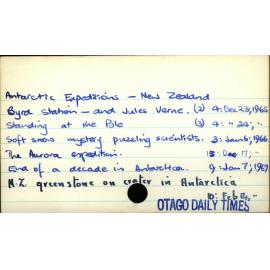 Antarctic Expeditions – New Zealand
Byrd Station – and Jules Verne. (2) 4: Dec 23, 1965
Standing at the Pole (3) 4: " 24, "
Soft snow mystery puzzling scientists. 3: Jan 6, 1966
The Aurora expedition. 15: Dec 17, "
End of a decade in Antarctica. 9: Jan 7, 1967
N.Z. greenstone on crater in Antarctica
10: Feb "
OTAGO DAILY TIMES